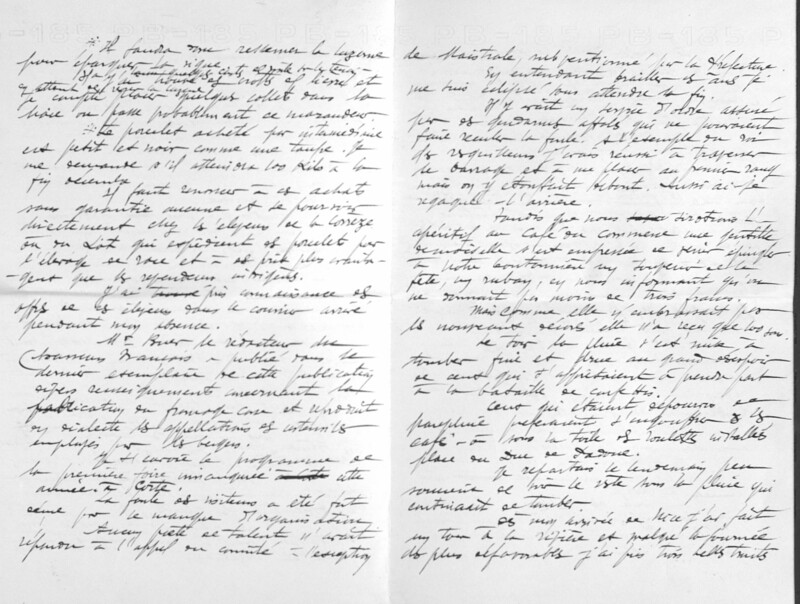 Il faudra donc refermer la luzerne
pour épargner la vigne.
J'ai trouvé quelques crottes et
je compte placer quelques collets dans la
haie où passe probablement ce maraudeur.
Le poulet acheté par intermédiaire
est petit et noir comme une taupe. Je
me demande s'il atteindra 100 kilos à la
fin décembre.
Il faut renoncer à ces achats
sans garantie aucune et se pourvoir
directement chez les éleveurs de la Corrèze
ou du Lot qui expédient des poulets pour
l'élevage de race et à des prix plus avanta-
-geux que les revendeurs
J'ai pris connaissance des
offres de ces éleveurs dans le courrier arrivé
pendant mon absence.
Mr le rédacteur du
Français a publié dans le
dernier exemplaire de cette publication
divers renseignements concernant la
fabrication du fromage corse et reproduit
en dialecte les appellations des ustensiles
employés par les bergers.
Je t'envoie le programme de
la première foire inaugurée cette
année à Corte.
La foule des visiteurs a été fort
par le manque d'organisation.
Aucun poète de talent n'avait
répondu à l'appel du comité à l'exception
de Maistrale, subventionné par la Préfecture.
En entendant brailler ces ânes je
me suis éclipsé sans attendre la fin.
Il y avait un service d'ordre assuré
par des gendarmes qui ne pouvaient
faire reculer la foule. A l'exemple du roi
des resquilleurs j'avais réussi à traverser
le barrage et à me placer au premier rang
mais on y étouffait debout. Aussi ai-je
regagné l'arrière.
Tandis que nous sirotions l'
apéritif au Café du Commerce une gentille
demoiselle s'est empressée de venir épingler
à notre boutonnière un de la
fête, un ruban, en nous informant qu'on
ne donnait pas moins de trois francs.
Mais comme elle n'embrassait pas
les nouveaux décorés elle n'a reçu que 100 sous.
Le soir la pluie s'est mise à
tomber fine et drue au grand désespoir
de ceux qui s'apprêtaient à prendre part
à la bataille de confettis.
Ceux qui étaient dépourvus de
parapluie préféraient s'engouffrer dans les
cafés ou sous la toile des roulottes installées
place du Duc de Padoue.
Je repartais le lendemain peu
de la veste sous la pluie qui
continuait de tomber.
Dès mon arrivée de Nice j'ai fait
un tour à la rivière et malgré la journée
des plus défavorables j'ai pris trois belles truites